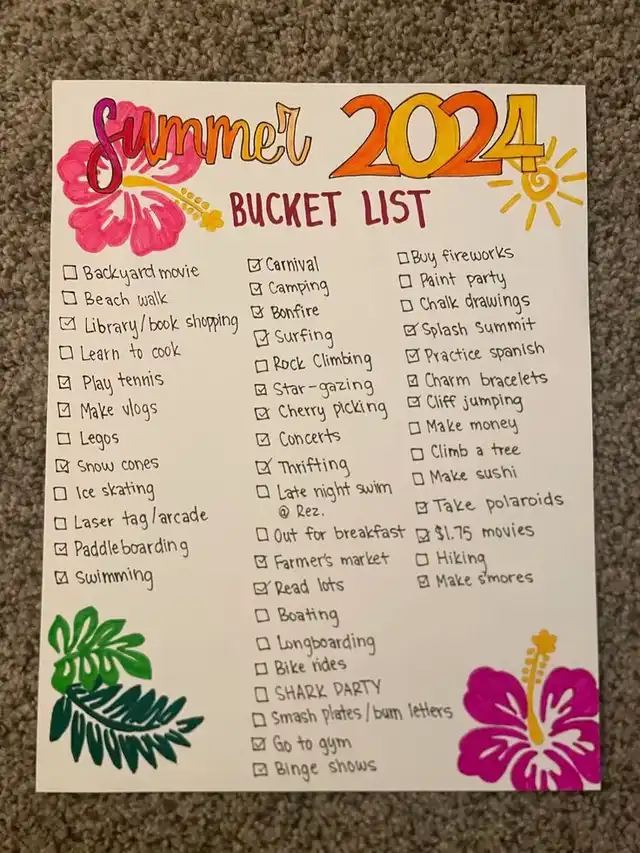 Summer 2024
BUCKET LIST
☐ Backyard movie
☐ Beach walk
☑ Library/book shopping
☐ Learn to cook
☑ Play tennis
☑ Make vlogs
☐ Legos
☑ Snow cones
☐ Ice skating
☐ Laser tag/arcade
☑ Paddleboarding
☑ Swimming
☑ Carnival
☑ Camping
☑ Bonfire
☑ Surfing
☐ Rock Climbing
☑ Star-gazing
☑ Cherry picking
☑ Concerts
☑ Thrifting
☐ Late night swim
@ Rez.
☐ Out for breakfast
☑ Farmer's market
☑ Read lots
☐ Boating
☐ Longboarding
☐ Bike rides
☐ SHARK PARTY
☐ Smash plates/burn letters
☑ Go to gym
☑ Binge shows
☐ Buy fireworks
☐ Paint party
☐ Chalk drawings
☑ Splash Summit
☑ Practice spanish
☑ Charm bracelets
☑ Cliff jumping
☐ Make money
☐ Climb a tree
☐ Make sushi
☑ Take polaroids
☑ $1.75 movies
☐ Hiking
☑ Make s'mores